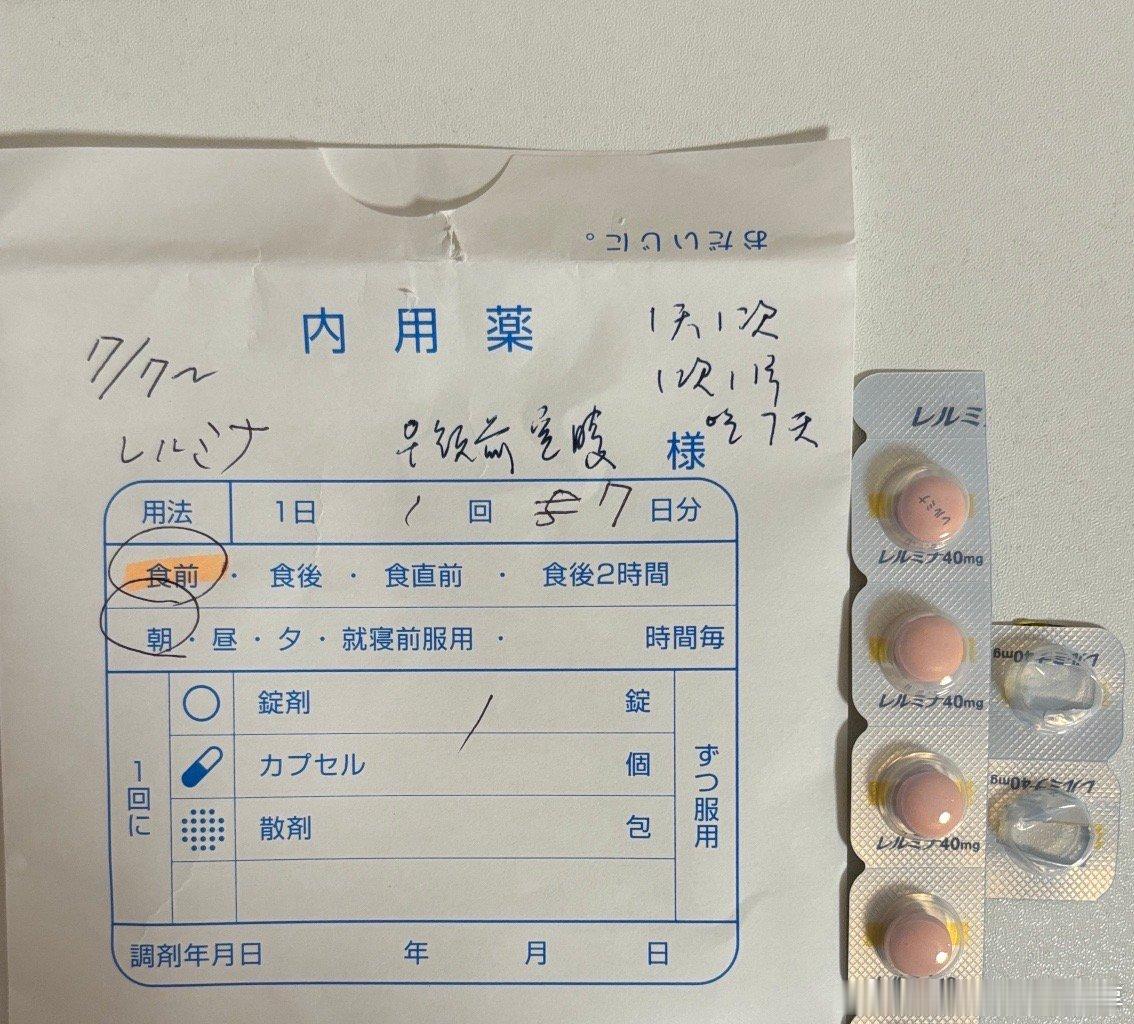 おだいじに。
内用薬
1天1次
7/7〜
1次1片
レルミナ
早饭前空腹
吃7天
様
用法 1日 1 回 5 7 日分
食前・食後・食直前・食後2時間
朝・昼・夕・就寝前服用・ 時間毎
1回に
錠剤 1 錠
カプセル 個
散剤 包
ずつ服用
調剤年月日 年 月 日
レルミ
レルミナ
レルミナ40mg
レルミナ40mg
レルミナ40mg
レルミナ40mg
レルミナ40mg